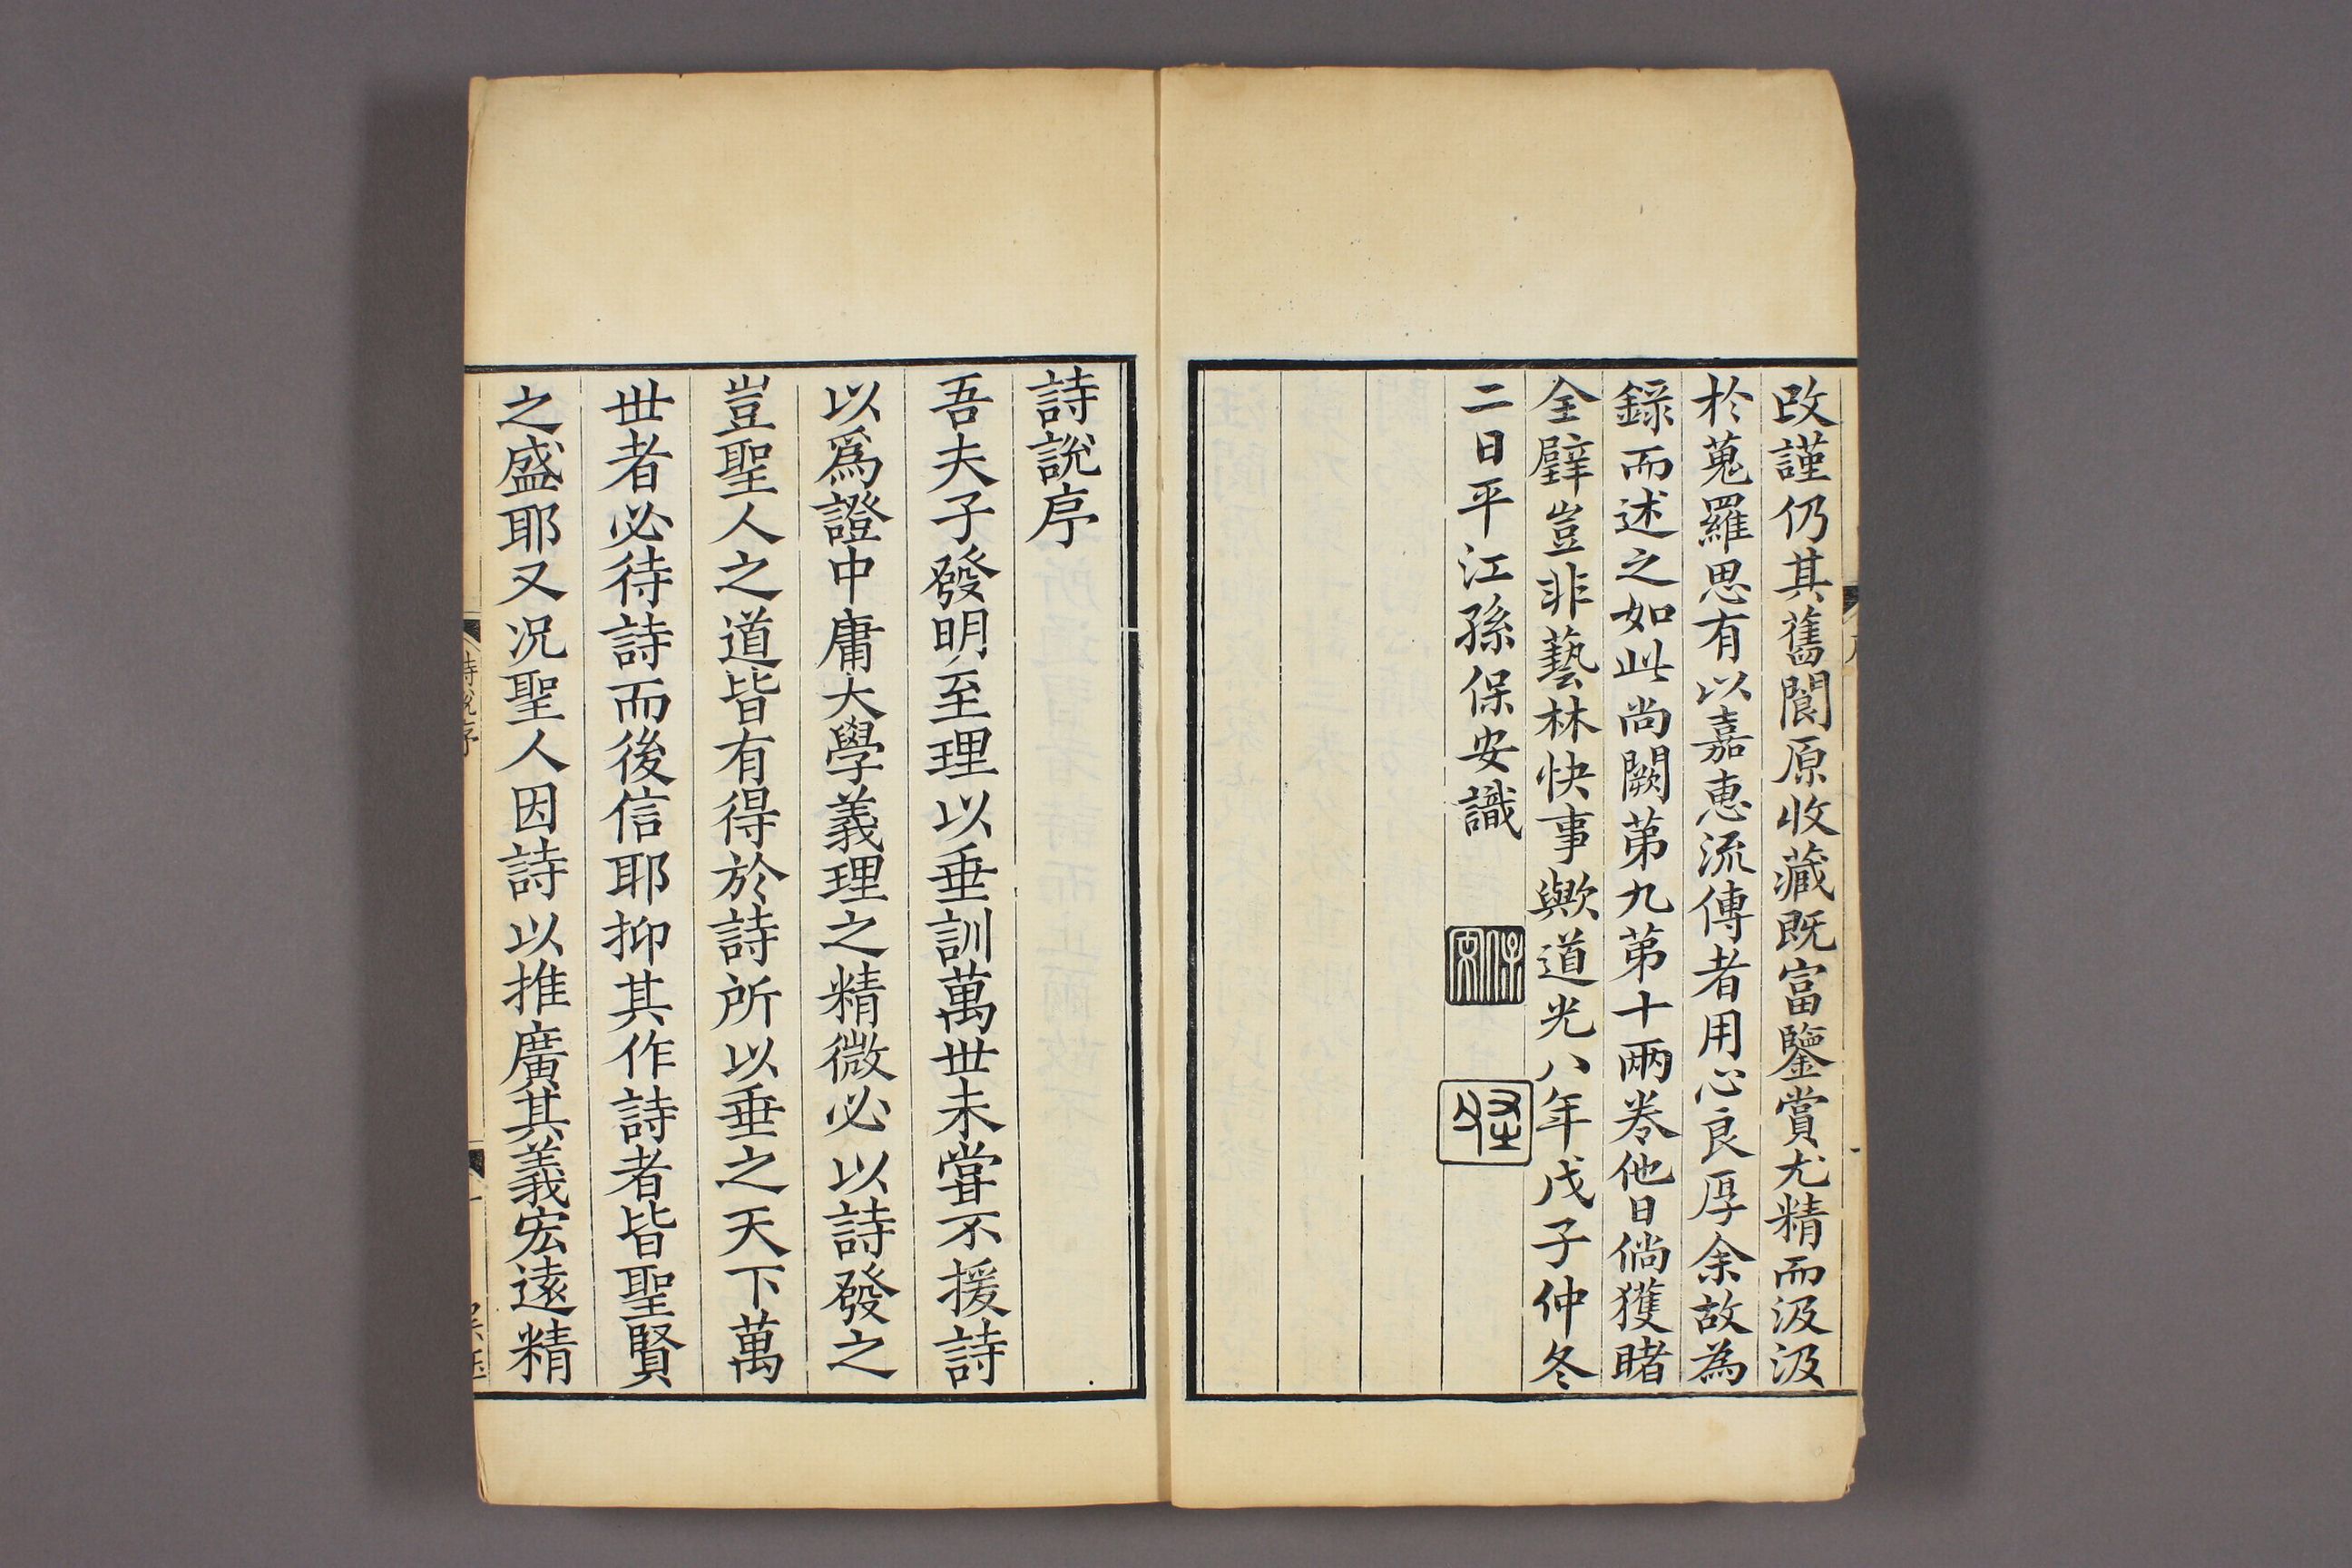 改謹仍其舊閬原收藏既富鑒賞尤精而汲汲
於蒐羅思有以嘉惠流傳者用心良厚余故為
錄而述之如此尚闕苐九苐十兩卷他日倘獲睹
全璧豈非藝林快事歟道光八年戊子仲冬
二日平江孫保安識
詩說序
吾夫子發明至理以垂訓萬世未甞不援詩
以爲證中庸大學義理之精微必以詩發之
豈聖人之道皆有得於詩所以垂之天下萬
世者必待詩而後信耶抑其作詩者皆聖賢
之盛耶又况聖人因詩以推廣其義宏遠精
詩說序